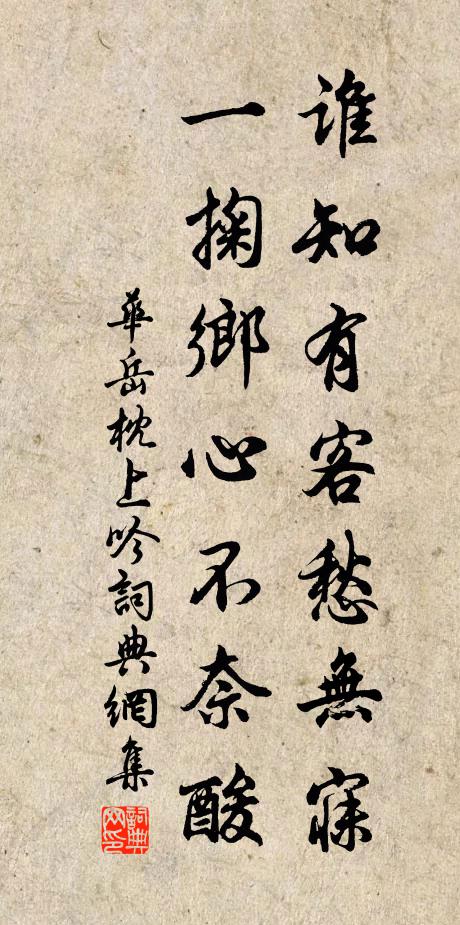 誰知有客愁無寐
一掬鄉心不奈酸
華岳枕上吟詞典網集
詞典網印